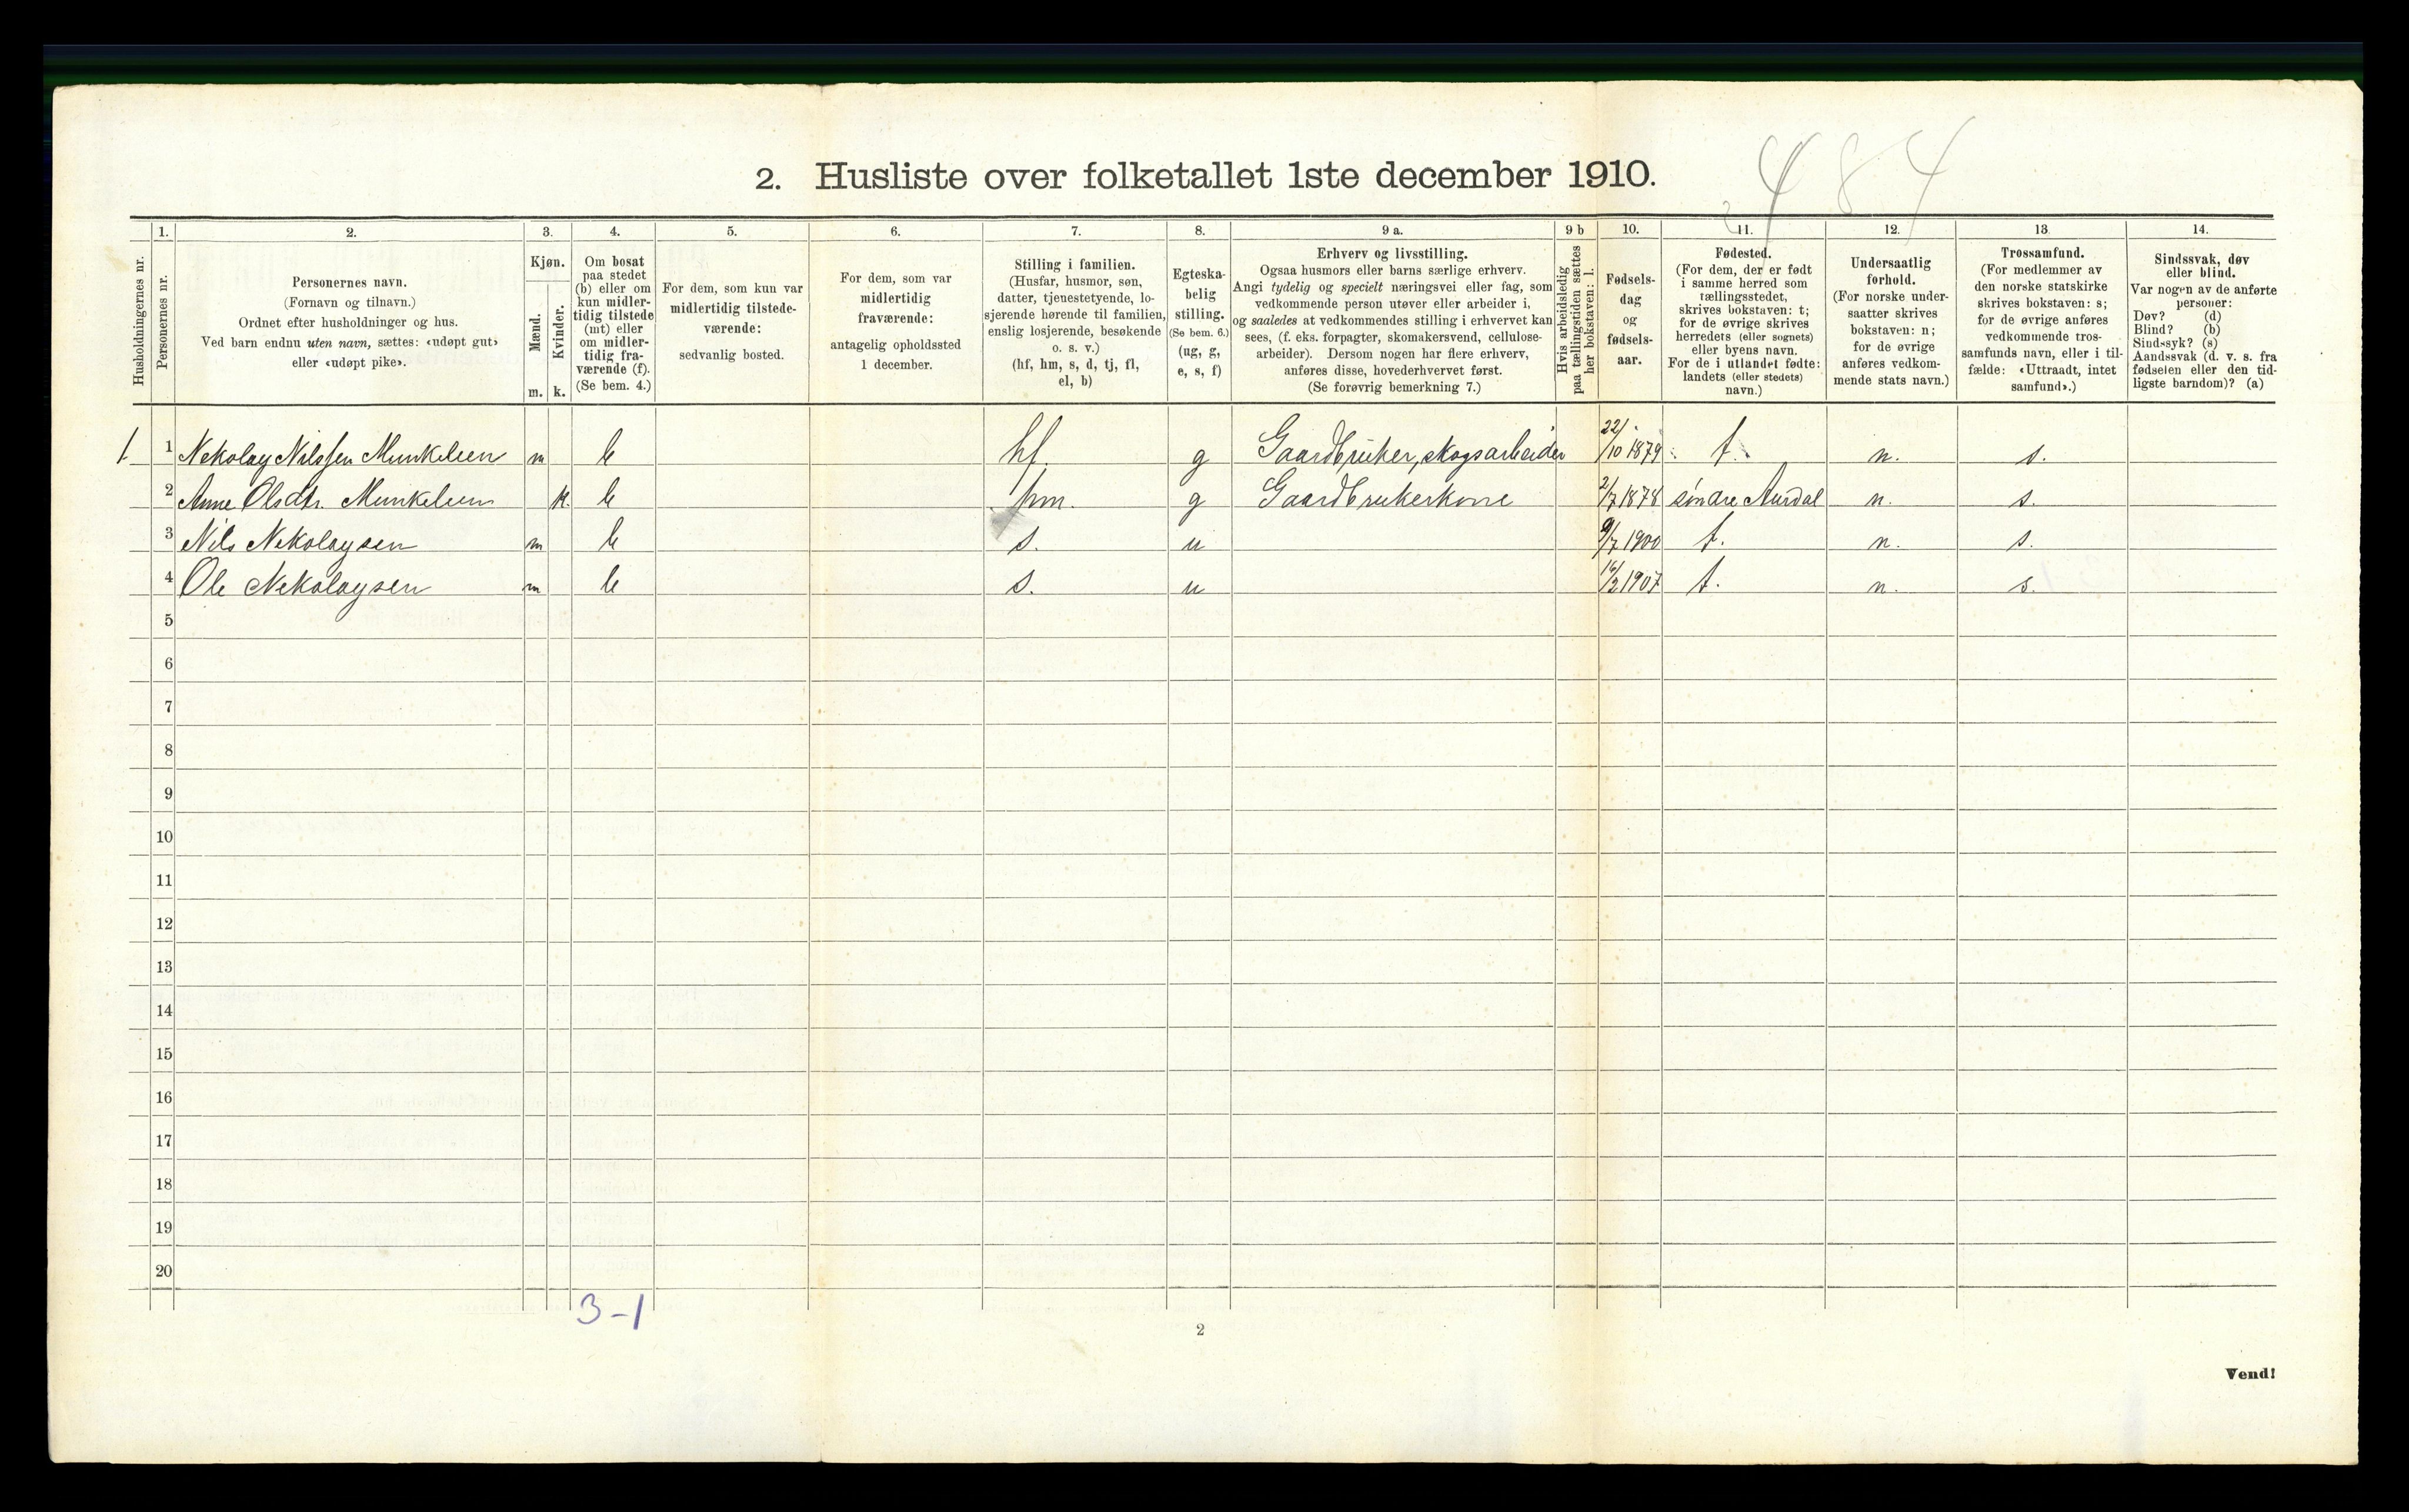 484
2. Husliste over folketallet 1ste december 1910.
Husholdningernes nr.
1.
Personernes nr.
2.
Personernes navn.
(Fornavn og tilnavn.)
Ordnet efter husholdninger og hus.
Ved barn endnu uten navn, sættes: «udøpt gut»
eller «udøpt pike».
3.
Kjøn.
Mænd.
m.
Kvinder.
k.
4.
Om bosat
paa stedet
(b) eller om
kun midler-
tidig tilstede
(mt) eller
om midler-
tidig fra-
værende (f).
(Se bem. 4.)
5.
For dem, som kun var
midlertidig tilstede-
værende:
sedvanlig bosted.
6.
For dem, som var
midlertidig
fraværende:
antagelig opholdssted
1 december.
7.
Stilling i familien.
(Husfar, husmor, søn,
datter, tjenestetyende, lo-
sjerende hørende til familien,
enslig losjerende, besøkende
o. s. v.)
(hf, hm, s, d, tj, fl,
el, b)
8.
Egteska-
belig
stilling.
(Se bem. 6.)
(ug, g,
e, s, f)
9 a.
Erhverv og livsstilling.
Ogsaa husmors eller barns særlige erhverv.
Angi tydelig og specielt næringsvei eller fag, som
vedkommende person utøver eller arbeider i,
og saaledes at vedkommendes stilling i erhvervet kan
sees, (f. eks. forpagter, skomakersvend, cellulose-
arbeider). Dersom nogen har flere erhverv,
anføres disse, hovederhvervet først.
(Se forøvrig bemerkning 7.)
9 b
Hvis arbeidsledig
paa tællingstiden sættes
her bokstaven: l.
10.
Fødsels-
dag
og
fødsels-
aar.
11.
Fødested.
(For dem, der er født
i samme herred som
tællingsstedet,
skrives bokstaven: t;
for de øvrige skrives
herredets (eller sognets)
eller byens navn.
For de i utlandet fødte:
landets (eller stedets)
navn.)
12.
Undersaatlig
forhold.
(For norske under-
saatter skrives
bokstaven: n;
for de øvrige
anføres vedkom-
mende stats navn.)
13.
Trossamfund.
(For medlemmer av
den norske statskirke
skrives bokstaven: s;
for de øvrige anføres
vedkommende tros-
samfunds navn, eller i til-
fælde: «Uttraadt, intet
samfund».)
14.
Sindssvak, døv
eller blind.
Var nogen av de anførte
personer:
Døv? (d)
Blind? (b)
Sindssyk? (s)
Aandssvak (d. v. s. fra
fødselen eller den tid-
ligste barndom)? (a)
1 1 Nekolay Nilssen Munkelien m b hf g Gaardbruker, skogsarbeider 22/10 1879 t. n. s.
2 Anne Olsdtr. Munkelien k. b hm. g Gaardbrukerkone 2/7 1878 søndre Aurdal n. s.
3 Nils Nekolaysen m b s. u 9/7 1900 t. n. s.
4 Ole Nekolaysen m b s. u 16/2 1907 t. n. s.
5
6
7
8
9
10
11
12
13
14
15
16
17
18
19
20
3-1
2
Vend!